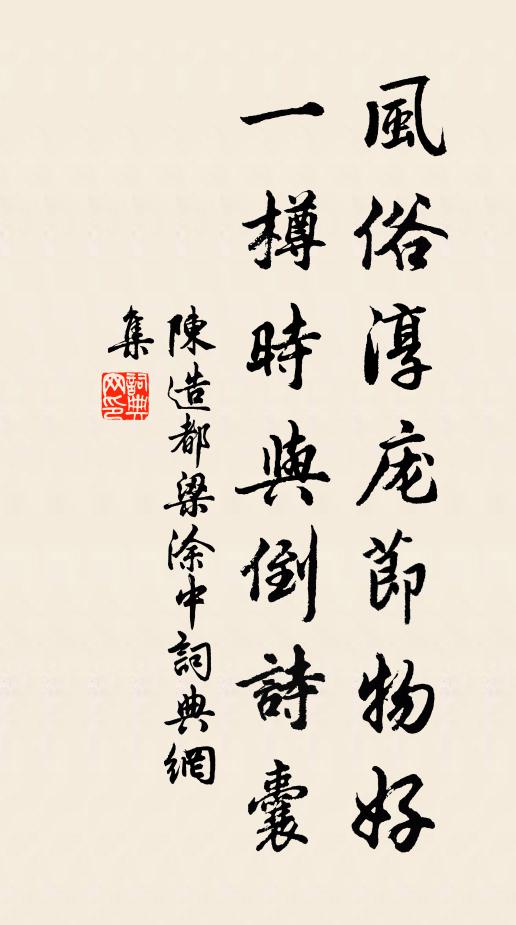 風俗淳庬節物好
一樽時與倒詩囊
陳造都梁涂中詞典網
集
詞典网印